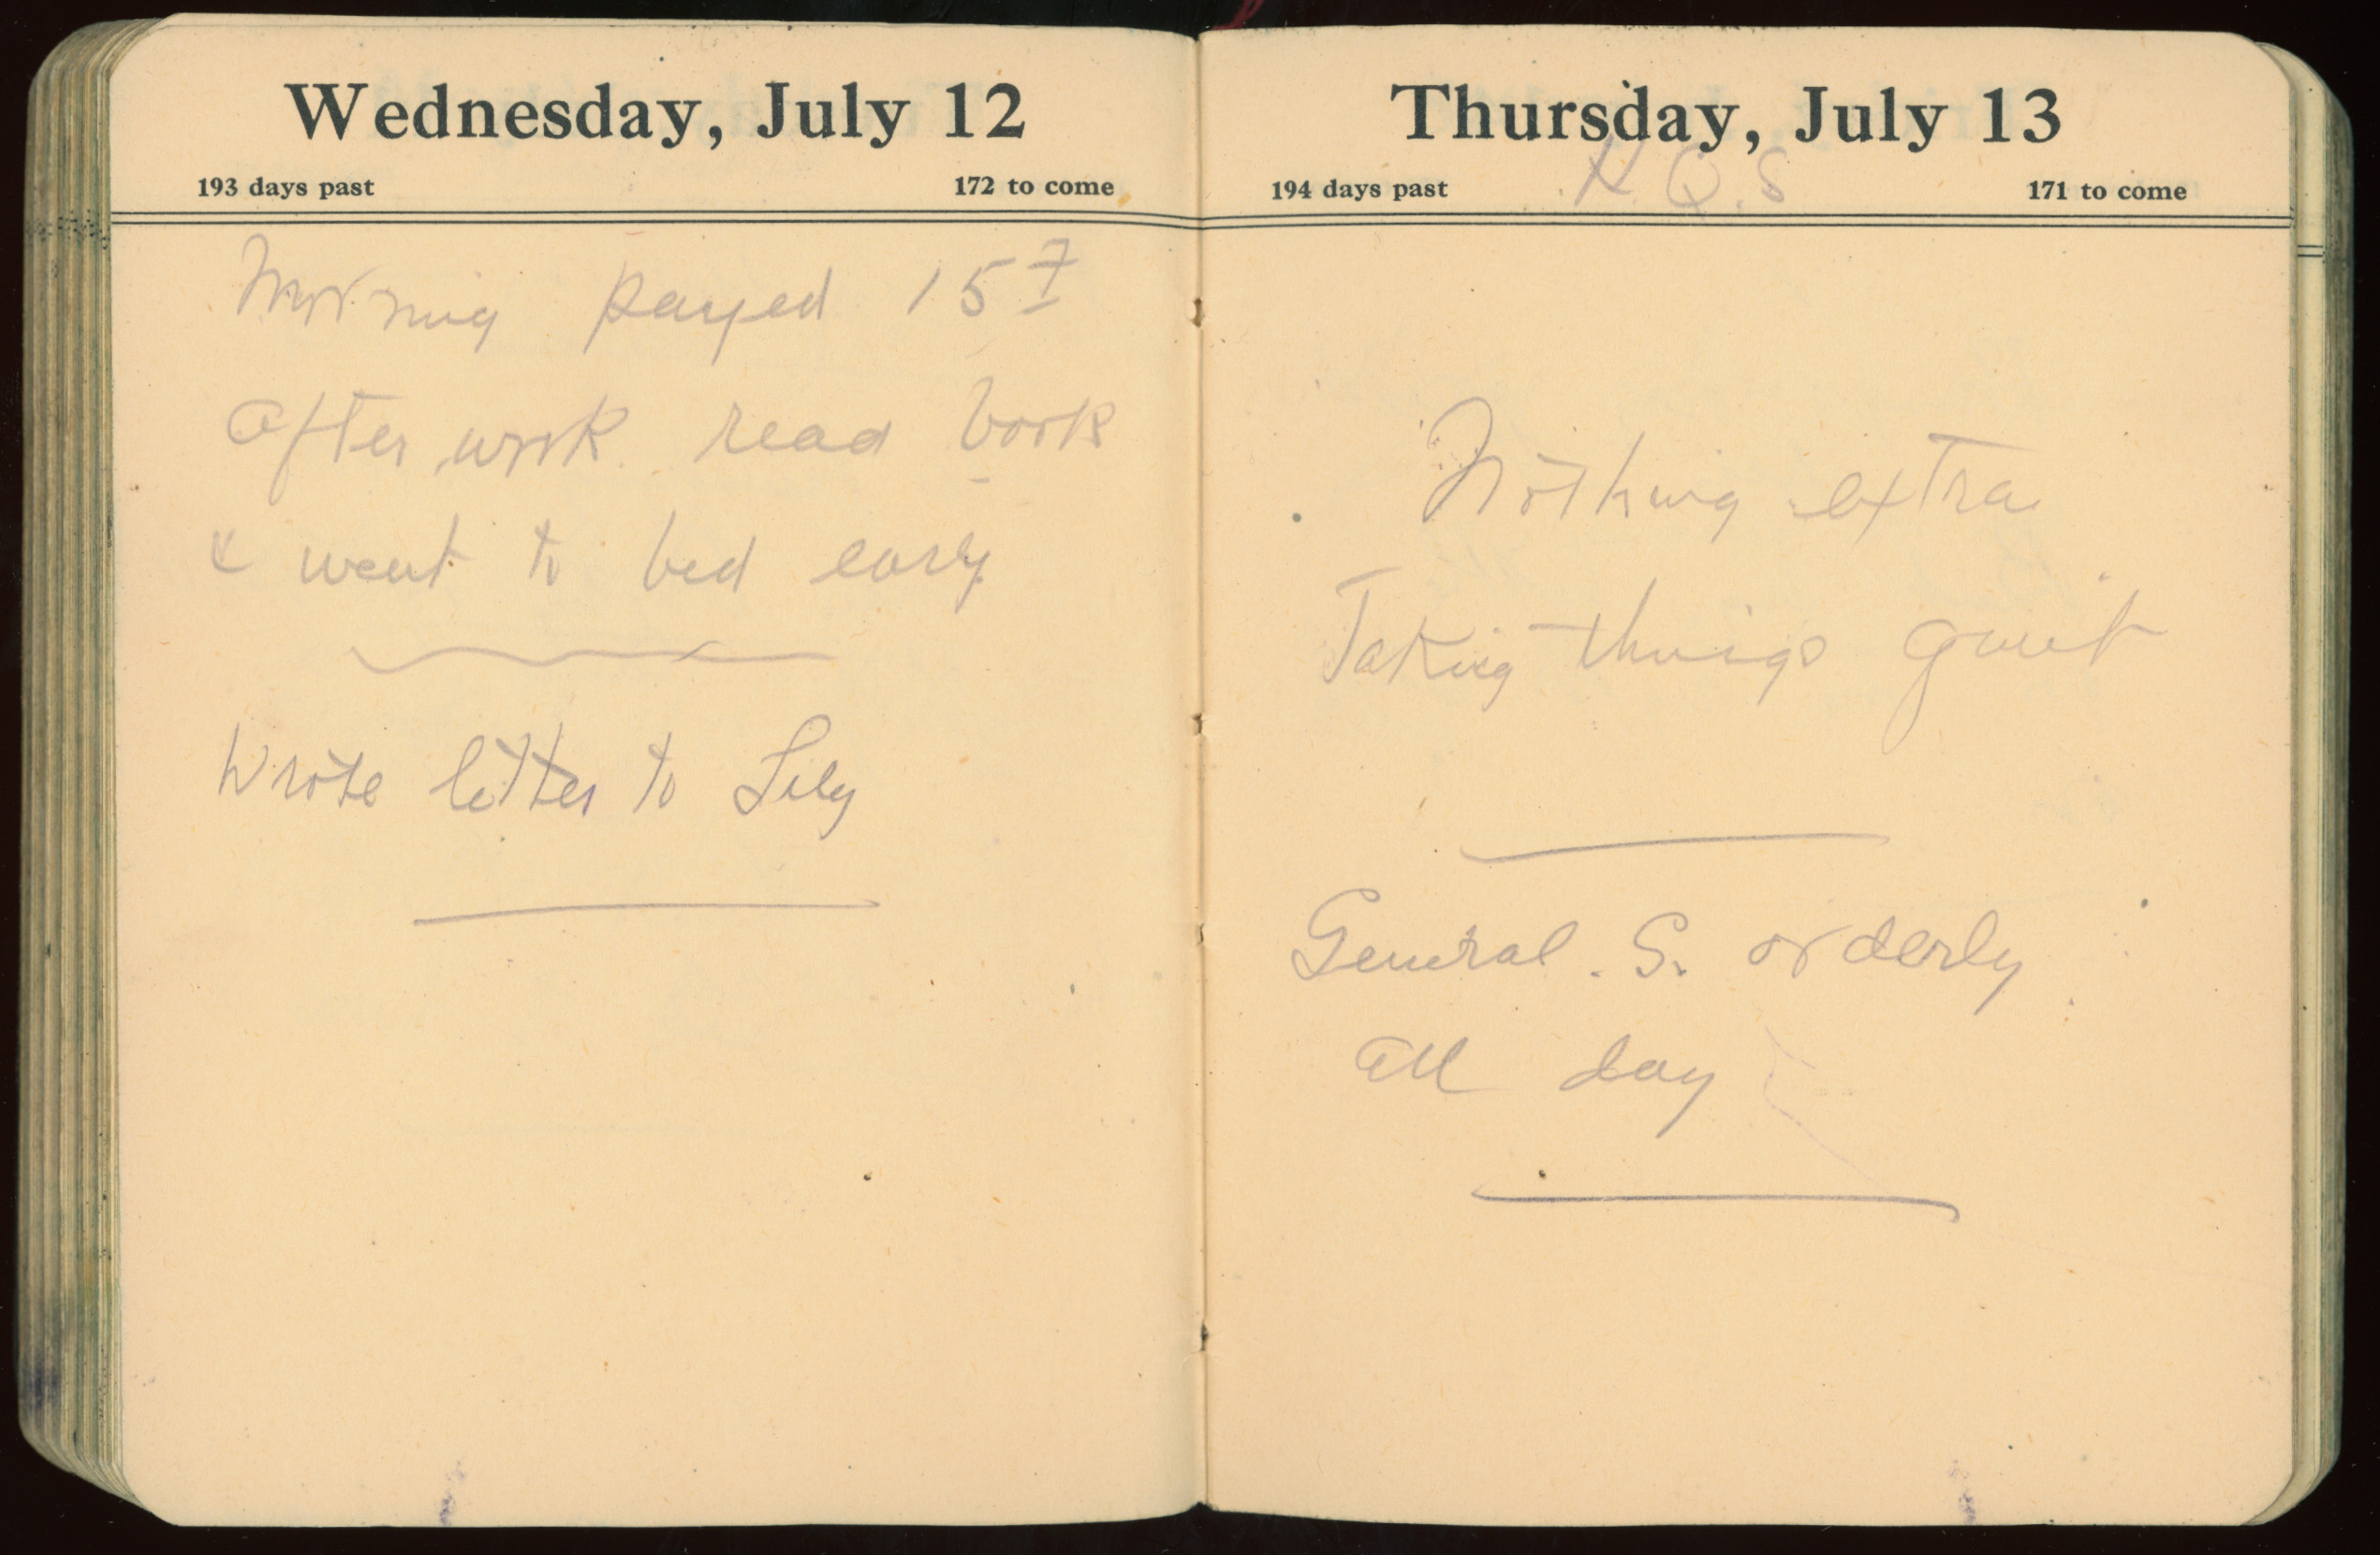 Wednesday, July 12
193 days past 172 to come
Morning payed 15 F
After work read book
& went to bed early
Wrote letter to Lily
Thursday, July 13
194 days past H.Q.S 171 to come
Nothing extra
Taking things quit
General. S. orderly
all day